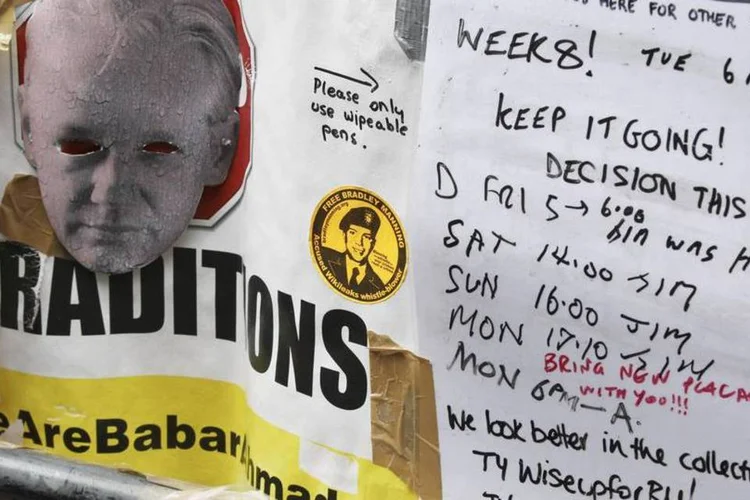 HERE FOR OTHER
WEEK 8! TUE 6
Please only
use wipeable
pens.
KEEP IT GOING!
DECISION THIS
FREE BRADLEY MANNING
Accused Wikileaks whistle-blower
D FRI 5→ 6:00
WAS
SAT 14.00 JIM
SUN 16.00 JIM
RADITIONS
MON 17.10 JIM
BRING NEW PLACA
MON 6PM—A.
WITH YOU!!!
eAreBabarAhmad
We look better in the collect
TY WiseupforBM!